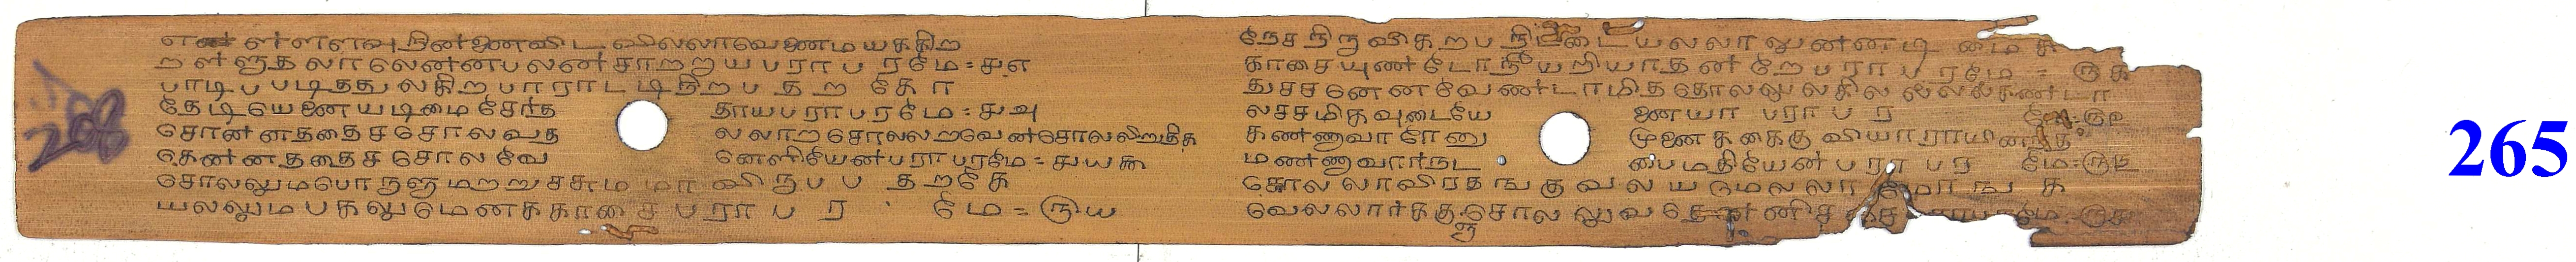 எள்ளளவு நின்னைவிட வில்லாவெனைமயககிற
றள்ளுதலாலென்னபலன் சாறறுயபராபரமே = ௪௭
பாடிப படிதது லகிற பாராடடி நிறபதறகோ
தேடியெனையடிமை சேர்த தாயபராபரமே = ௪௮
சொன்னததைச சொலவத லலாறசொலலறவென்சொலலிறுதிக
கென்னததைச சொலவே னெளியேன்பராபரமே = ௪௰௯
சொலலுமபொருளுமறறுச சுமமாவிருபப தறகே
யலலுமபகலுமெனககாசை பராபரமே = ௫௰
நேச நிருவிகறப நிட்டையலலாலுன்னடிமைக
காசையுண்டோநீயறியாதன்றே பராபரமே = ௫௧
துசசனென வேண்டாமித தொலலுலகில கண்டா
லசசமிகவுடையே னையா பராபர மே=௫௨
கண்ணாவாரேனு முனைககைகுவியாராயின
மண்ணாவார்நட பைமதியேன் பராபர மே=௫௩
கொலலாவிரதங குவலயமெலலா மோங க
வெலலார்ககுஞசொலலுவதென மே=௫௪